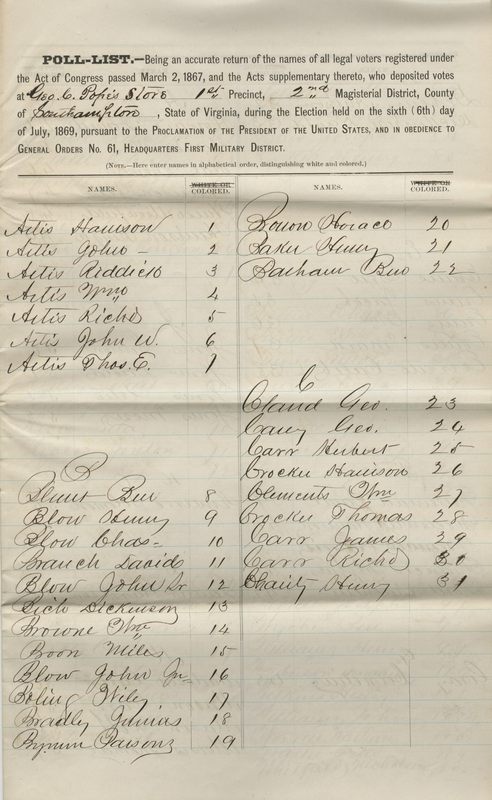 POLL-LIST.—Being an accurate return of the names of all legal voters registered under
the Act of Congress passed March 2, 1867, and the Acts supplementary thereto, who deposited votes
at Geo. C. Pope's Store 1st Precinct, 2nd Magisterial District, County
of Southampton, State of Virginia, during the Election held on the sixth (6th) day
of July, 1869, pursuant to the Proclamation of the President of the United States, and in obedience to
General Orders No. 61, Headquarters First Military District.
(Note.—Here enter names in alphabetical order, distinguishing white and colored.)
NAMES. WHITE OR COLORED. NAMES. WHITE OR COLORED.
Artis Harrison 1
Artis John 2
Artis Riddick 3
Artis Wm 4
Artis Richd 5
Artis John W. 6
Artis Thos. E. 7
B
Blunt Ben 8
Blow Henry 9
Blow Chas 10
Branch David 11
Blow John Sr 12
Dickenson 13
Browne Wm 14
Boon Miles 15
Blow John Jr 16
Boling Wiley 17
Bradley Junius 18
Bynum Parsons 19
Horace 20
Baker Henry 21
Barham Ben 22
C
Claud Geo. 23
Cary Geo. 24
Carr Herbert 25
Crocker Harrison 26
Clements Wm 27
Crocker Thomas 28
Carr James 29
Carr Richd 30
Charity Henry 31